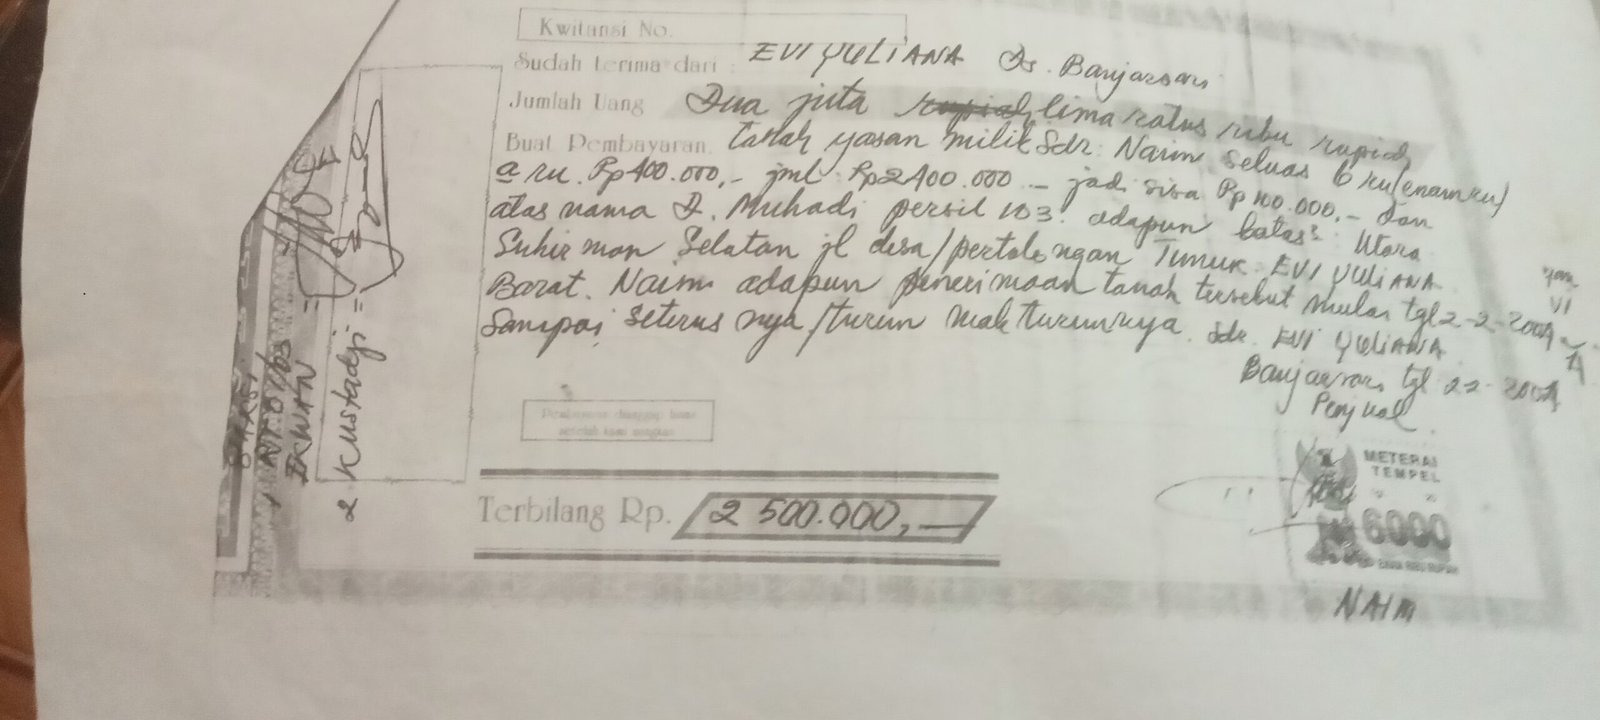 Kwitansi No.
Sudah terima dari : EVI YULIANA Ds. Banjarsari
Jumlah Uang Dua juta rupiah lima ratus ribu rupiah
Buat Pembayaran. tanah yasan milik Sdr. Naim Seluas 6 ru (enam ru)
a ru. Rp 400.000,- jml Rp 2400.000 - jadi sisa Rp 100.000,- dan
atas nama D. Muhadi persil 103. adapun batas² : Utara
Suhirman Selatan jl desa/pertolongan Timur. EVI YULIANA
Barat. Naim adapun penerimaan tanah tersebut mulai tgl 2-2-2004
Sampai seterusnya /turun makturunnya. Sdr. EVI YULIANA
Banjarsari tgl 22-2004
Penjual
METERAI
TEMPEL
6000
NAIM
Terbilang Rp. 2 500.000,-
SAKSI
IKWAN
2. Kustadji =